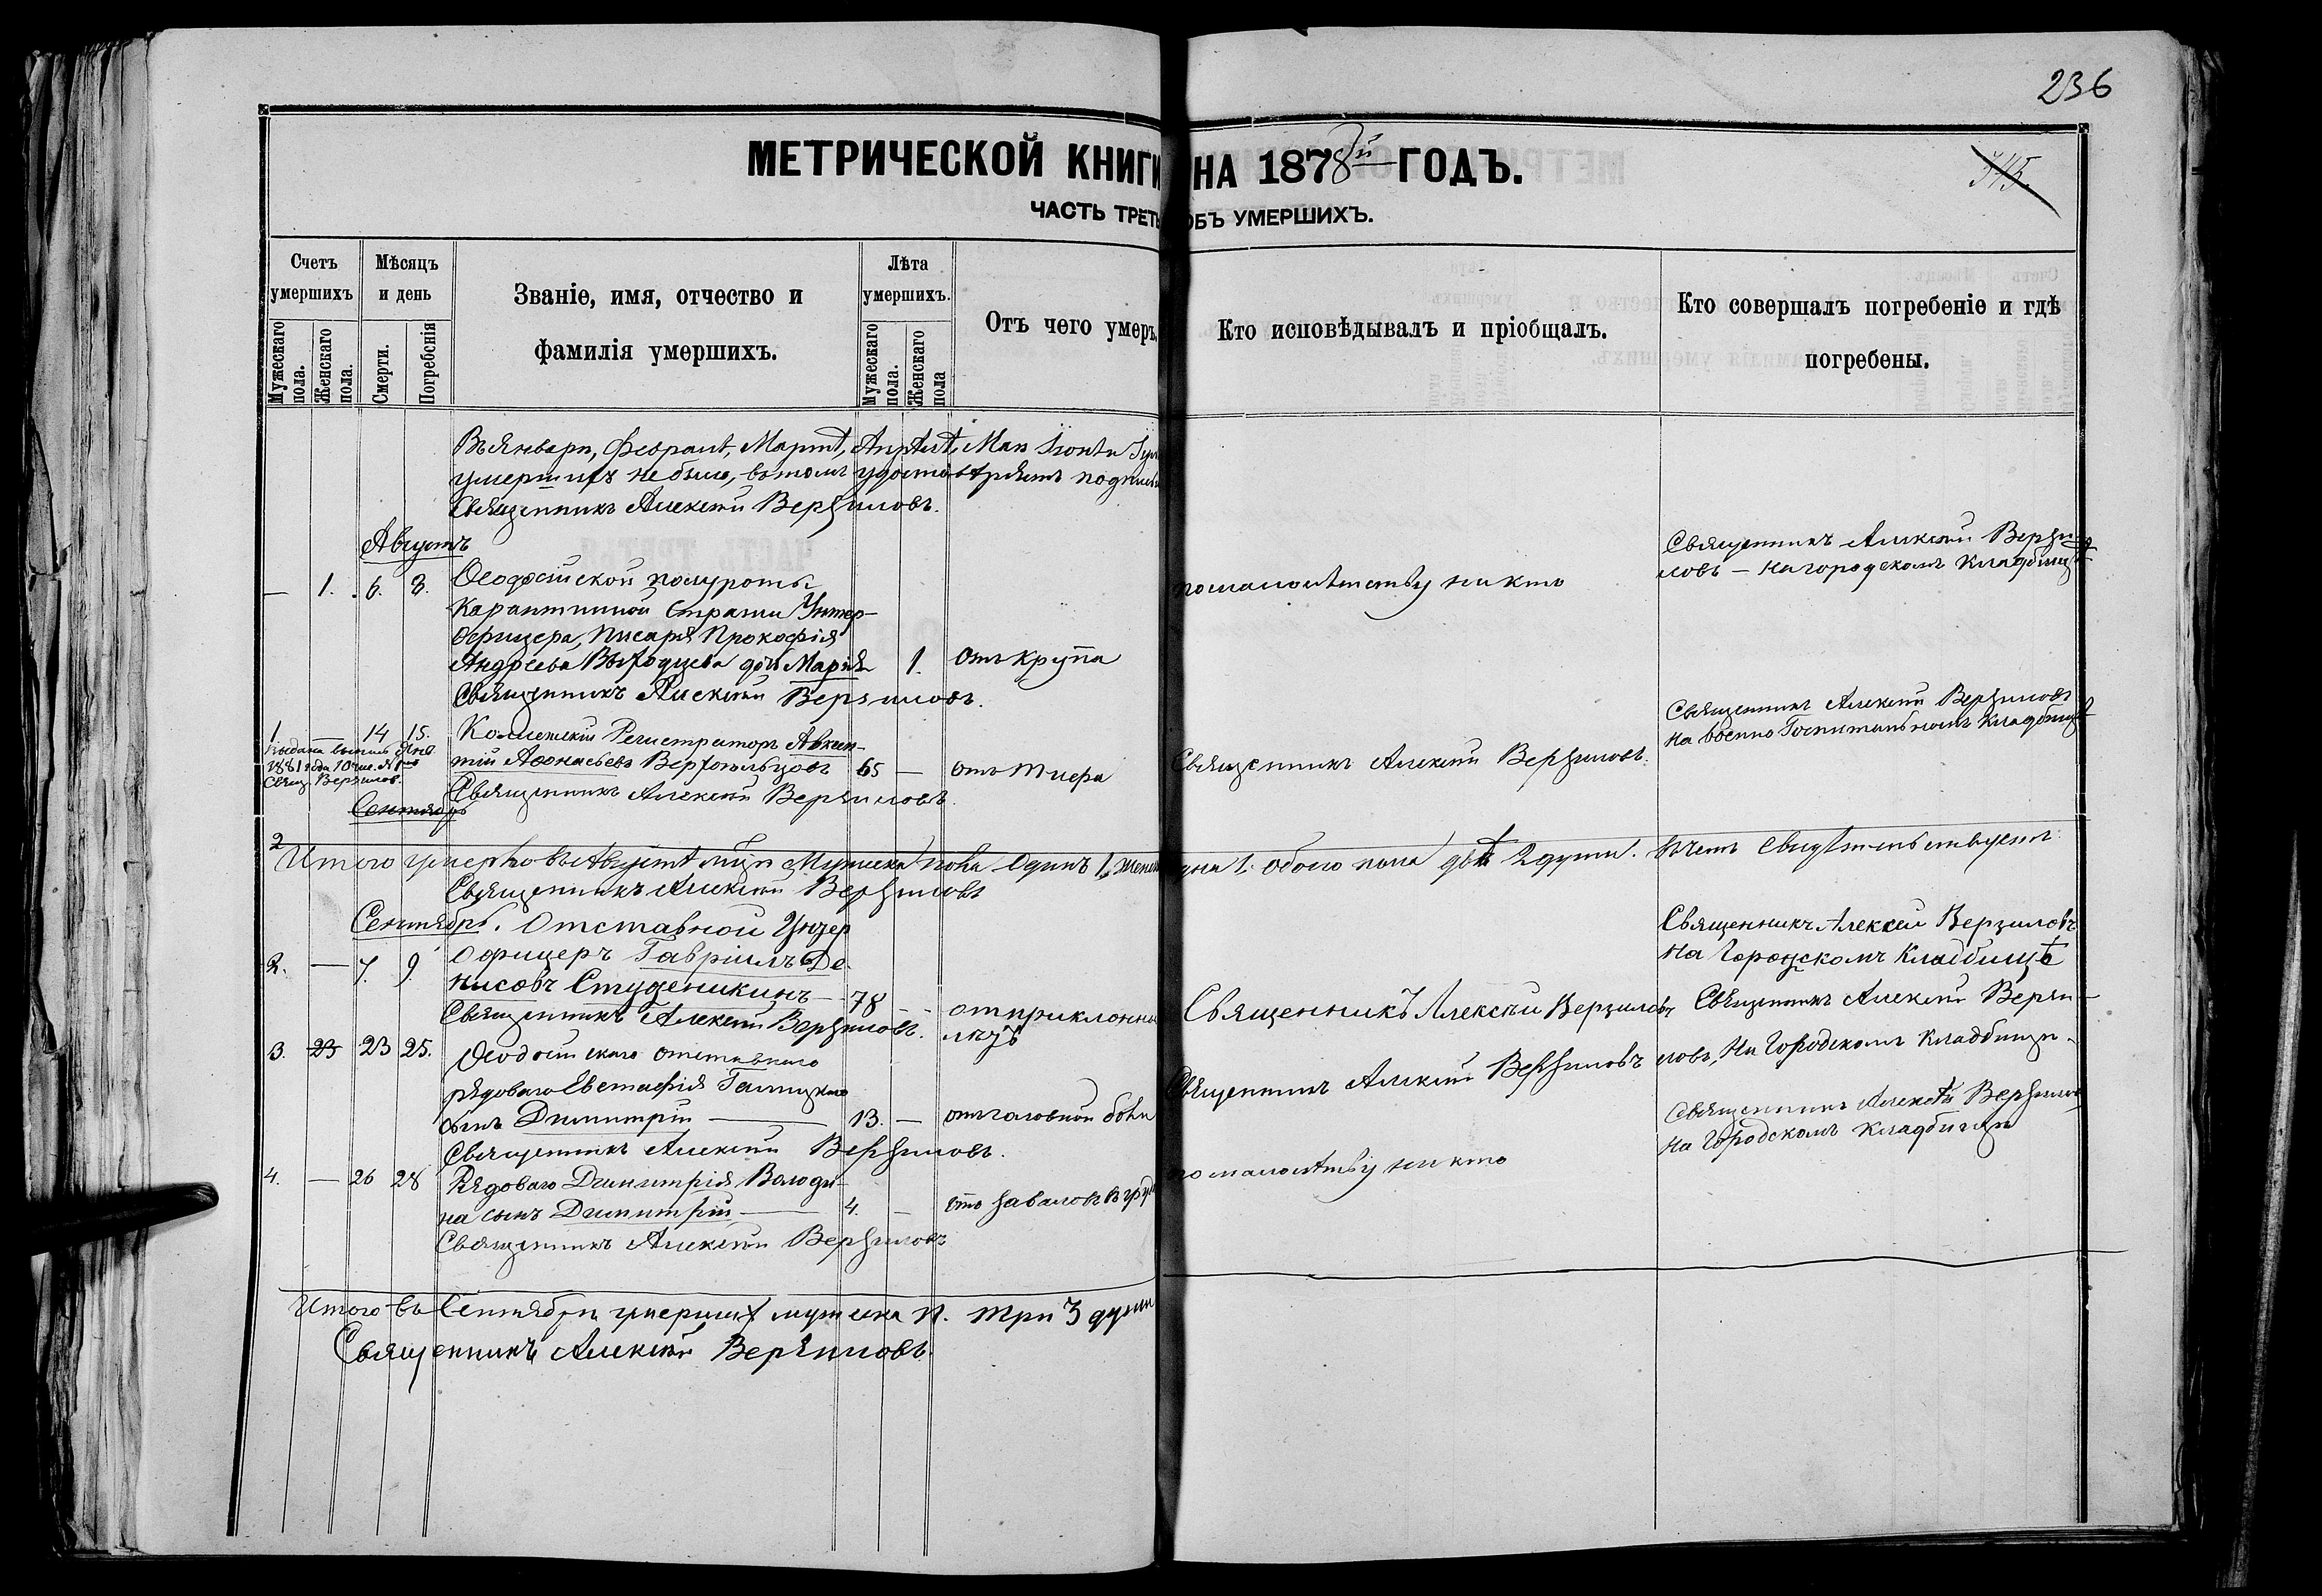 236
МЕТРИЧЕСКОЙ КНИГИ НА 1878й ГОДЪ.
345.
ЧАСТЬ ТРЕТЬ ОБЪ УМЕРШИХЪ.
Счетъ умершихъ
Мѣсяцъ и день
Званіе, имя, отчество и фамилія умершихъ.
Лѣта умершихъ.
Отъ чего умеръ.
Кто исповѣдывалъ и пріобщалъ.
Кто совершалъ погребеніе и гдѣ погребены.
Мужескаго пола.
Женскаго пола.
Смерти.
Погребенія
Мужескаго пола.
Женскаго пола
Въ Январи, Февралѣ, Мартѣ, Апрѣлѣ, Маи Іюнѣ и
умершихъ не было, въ томъ удостовѣряетъ
Священникъ Алексѣй Верзиловъ.
Августъ
— 1. 6. 8. Ѳеодосійской полуроты
Карантинной Стражи Унтер-
Офицера, Писаря Прокофія
Андреева Выходцева дочь Марія 1. Отъ крупа
по малолѣтству никто
Священникъ Алексѣй Верзи-
ловъ — На городскомъ кладбищѣ
Священникъ Алексѣй Верзиловъ.
1 — 14 15. Коллежскій Регистраторъ Авксен-
тій Аѳонасьевъ 65 — отъ тифа
Священникъ Алексѣй Верзиловъ.
Священникъ Алексѣй Верзиловъ
На военно Госпитальномъ кладбищѣ
1881 года
Свящ. Верзиловъ.
Священникъ Алексѣй Верзиловъ.
Сентябрь
2
Итого умерло въ Августѣ мужска пола Одинъ 1, женск одна 1. Обоего пола двѣ 2 души. въ чемъ свидѣтельствуетъ
Священникъ Алексѣй Верзиловъ
Сентябрь. Отставной Унтер
2. — 7. 9. офицеръ Гавріилъ Де-
нисовъ Студеникинъ — 78 — от приклонных
лѣтъ
Священникъ Алексѣй Верзиловъ
Священникъ Алексѣй Верзиловъ
На Городскомъ Кладбищѣ
Священникъ Алексѣй Верзиловъ.
3. 23 23 25. Ѳеодосійскаго отставнаго
рядоваго Евстафія Галицкаго
сынъ Димитрій — 13. — отъ головной боли
Священникъ Алексѣй Верзиловъ
Священникъ Алексѣй Верзи-
ловъ, На Городскомъ кладбищи.
Священникъ Алексѣй Верзиловъ.
4. — 26 28 Рядоваго Димитрія Володи-
на сынъ Димитрій — 4. — отъ заваловъ въ груди
по малолѣтству никто
Священникъ Алексѣй Верзиловъ
На Городскомъ кладбищи
Священникъ Алексѣй Верзиловъ
Итого въ Сентябри умершихъ мужска п. три 3 души
Священникъ Алексѣй Верзиловъ.